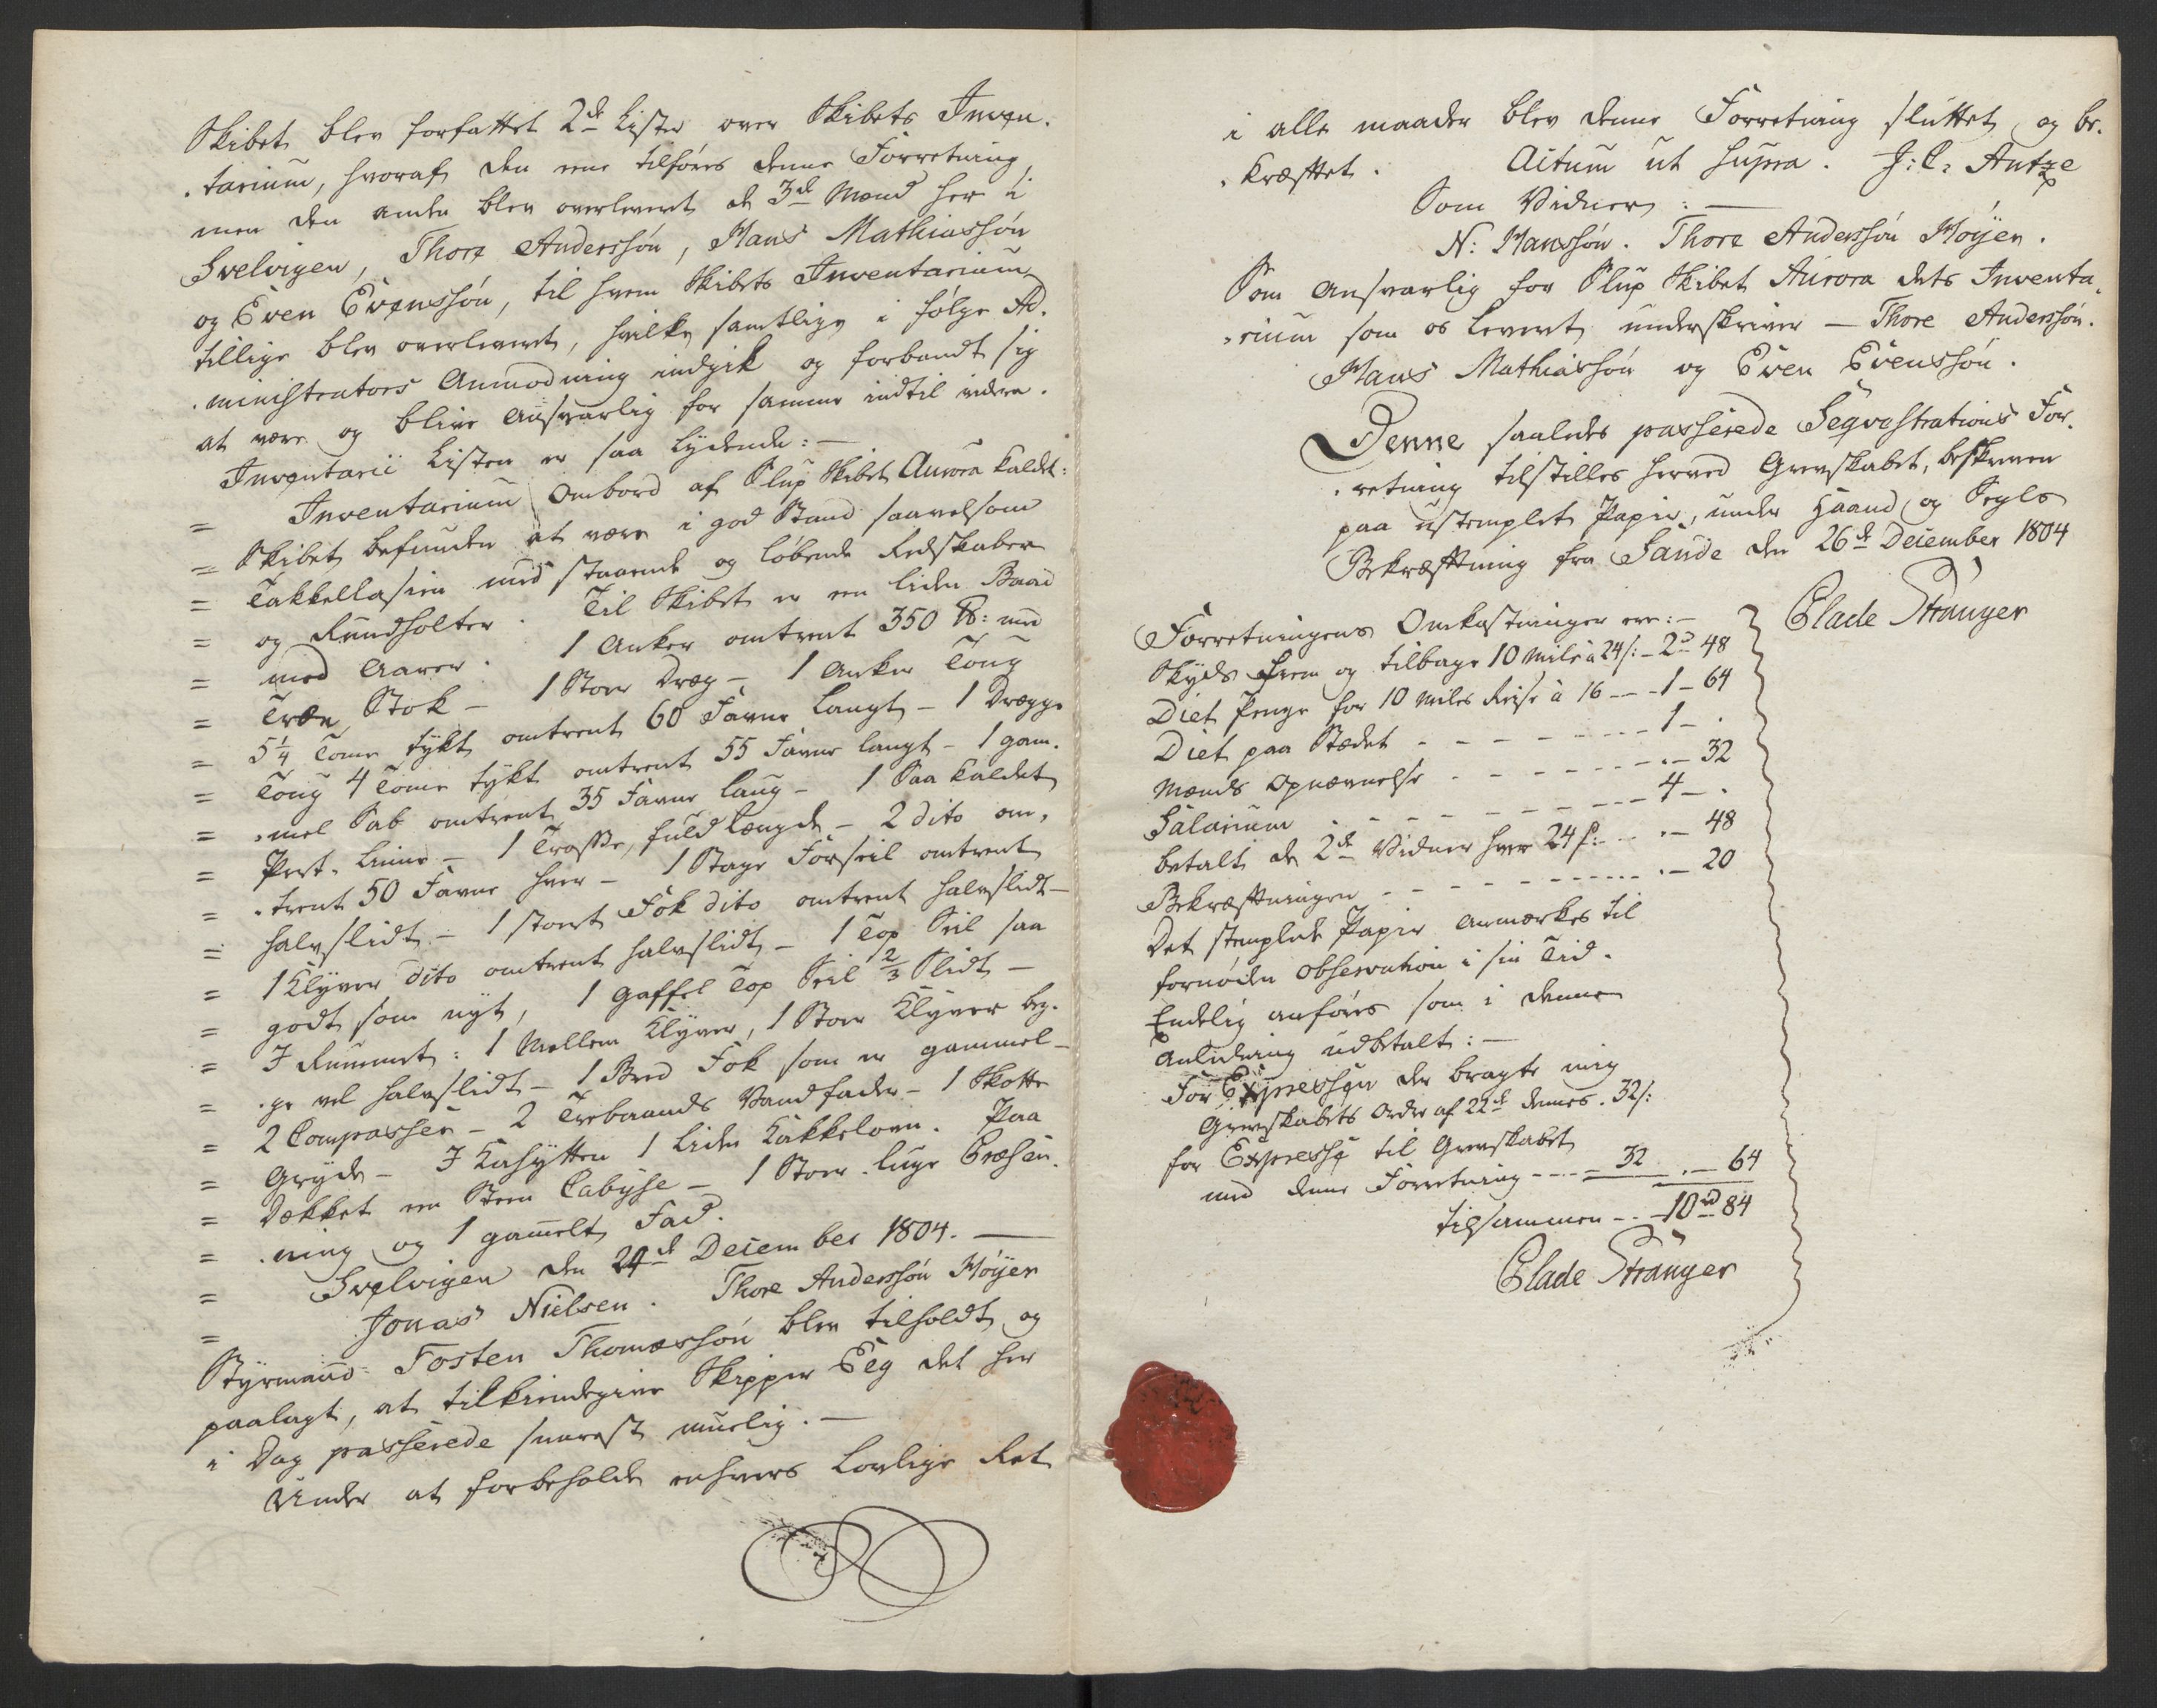 Skibet blev forfattet 2de Lister over Skibets Inven-
tarium, hvoraf den eene tilføres denne Forretning,
men den anden blev overleveret de 3de Mænd her i
Svelvigen, Thore Anderssøn, Hans Mathiassøn
og Even Evenssøn, til hvem Skibets Inventarium
tillige blev overleveret, hvilke samtlige i følge Ad-
ministrators Anmodning indgik og forbandt sig
at være og blive Ansvarlig for samme indtil videre.
Inventarii Listen er saa Lydende: —
= Inventarium Ombord af Slup Skibet Aurora kaldet:
= Skibet befunden at være i god Stand saavelsom
= Takkellasien med staaende og løbende Redskaber
= og Rundholter. Til Skibet er en liden Baad
= med Aarer. 1 Anker omtrent 350 ℔: med
= Træe Stok — 1 Stoer Dræg — 1 Anker Toug
= 5¼ Tome tykt omtrent 60 Favne Langt — 1 Drægge
= Toug 4 Tome tykt omtrent 55 Favne langt — 1 gam-
= mel Pab omtrent 35 Favne lang — 1 Saa kaldet
= Pert-Linie — 1 Trosse, fuld Længde — 2 dito om-
= trent 50 Favne hver — 1 Stage Forseil omtrent
= halvslidt — 1 stoert Fok dito omtrent halvslidt —
= 1 Klyver dito omtrent halvslidt — 1 Top Seil saa
= godt som nyt, 1 Gaffel Top Seil 2/3 Slidt —
= I Rummet: 1 Mellem Klyver, 1 Stoer Klyver beg-
= ge vel halvslidt — 1 Bred Fok som er gammel —
= 2 Compasser — 2 Trebaands Vandfade — 1 Skotte
= Gryde — I Kahytten 1 Liden Kakkelovn. Paa
= Dækket en Steen Cabyse — 1 Stoer luge Præsen-
= ning og 1 gammelt Fad.
= Svelvigen den 24de December 1804. —
= Jonas Nielsen. Thore Anderssøn Høyer
Styrmand Tosten Thomæssøn blev tilholdt og
paalagt, at tilkiendegive Skipper Eeg det her
i Dag passerede snarest muelig. —
Under at forbeholde enhvers Lovlige Ret
i alle maader blev denne Forretning sluttet og be-
kræftet. Actum ut supra. J: C: Antze
Som Vidner: —
N: Hanssøn. Thore Anderssøn Høyer.
Som Ansvarlig for Slup Skibet Aurora dets Inventa-
rium som os leveret underskriver — Thore Anderssøn.
Hans Mathiassøn og Even Evenssøn.
Denne saaledes passerede Seqvestrations For-
retning tilstilles herved Grevskabet, beskreven
paa ustemplet Papir, under Haand og Segls
Bekræftning fra Sande den 26de December 1804
Elade Stranger
Forretningens Omkostninger ere: —
Skyds frem og tilbage 10 Mile à 24 s: — 2 rd 48
Diet Penge for 10 Miles Reise à 16 — — 1 — 64
Diet paa Stædet - - - - - - 1 — .
Mænds Opnævnelse - - - - - - . — 32
Salarium - - - - - - 4 — .
betalt de 2de Vidner hver 24 s: - - . — 48
Bekræftningen - - - - - - . — 20
Det stemplede Papir anmærkes til
fornøden Observation i sin Tid.
Endelig anføres som i denne
Anledning udbetalt: —
For Expressen der bragte mig
Grevskabets Ordre af 22de dennes. 32 s:
for Expresse til Grevskabet
med denne Forretning - - - 32 . — 64
tilsammen - - - 10 rd 84
Elade Stranger